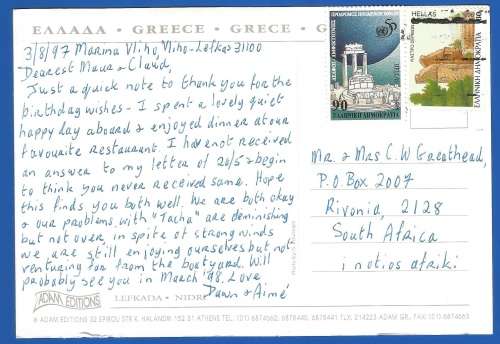 ΕΛΛΑΔΑ - GREECE - GRECE
3/8/97 Marina Vliho, Niho-Lefkas 31100
Dearest Maua & Claud,
Just a quick note to thank you for the
birthday wishes - I spent a lovely quiet
happy day aboard & enjoyed dinner at our
favourite restaurant. I have not received
an answer to my letter of 20/5 & begin
to think you never received same. Hope
this finds you both well. We are both okay
& our problems with "Tacha" are deminishing
but not over, in spite of strong winds
we are still enjoying ourselves but not
venturing far from the boatyard. Will
probably see you in March '98. Love
Dawn & Aimé
ADAM EDITIONS
LEFKADA - NIDRI
© ADAM EDITIONS 32 EPIROU STR K. HALANDRI 152 31 ATHENS TEL. (01) 6874662, 6878440, 6878441 FAX: 6874663
90
ΕΛΛΗΝΙΚΗ ΔΗΜΟΚΡΑΤΙΑ
HELLAS
ΕΛΛΗΝΙΚΗ ΔΗΜΟΚΡΑΤΙΑ
Mr. & Mrs C. W Greathead,
P.O. Box 2007
Rivonia, 2128
South Africa
i notios afriki.